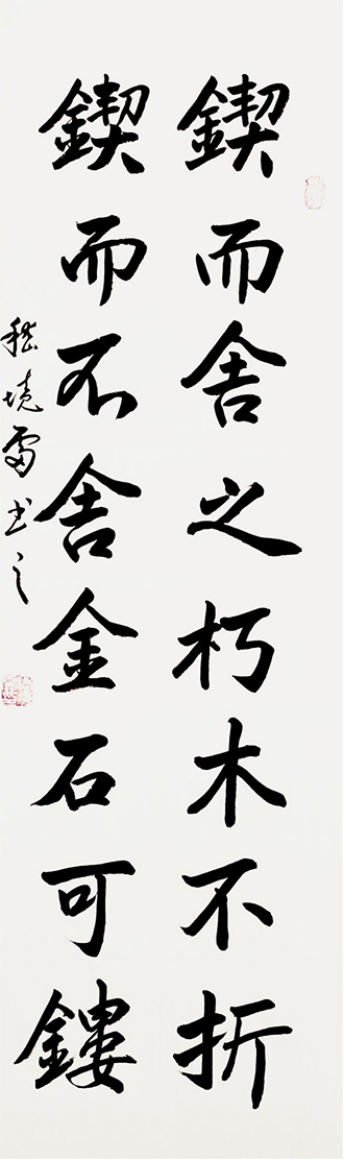 鍥而舍之朽木不折
鍥而不舍金石可鏤
嵇境雷书之